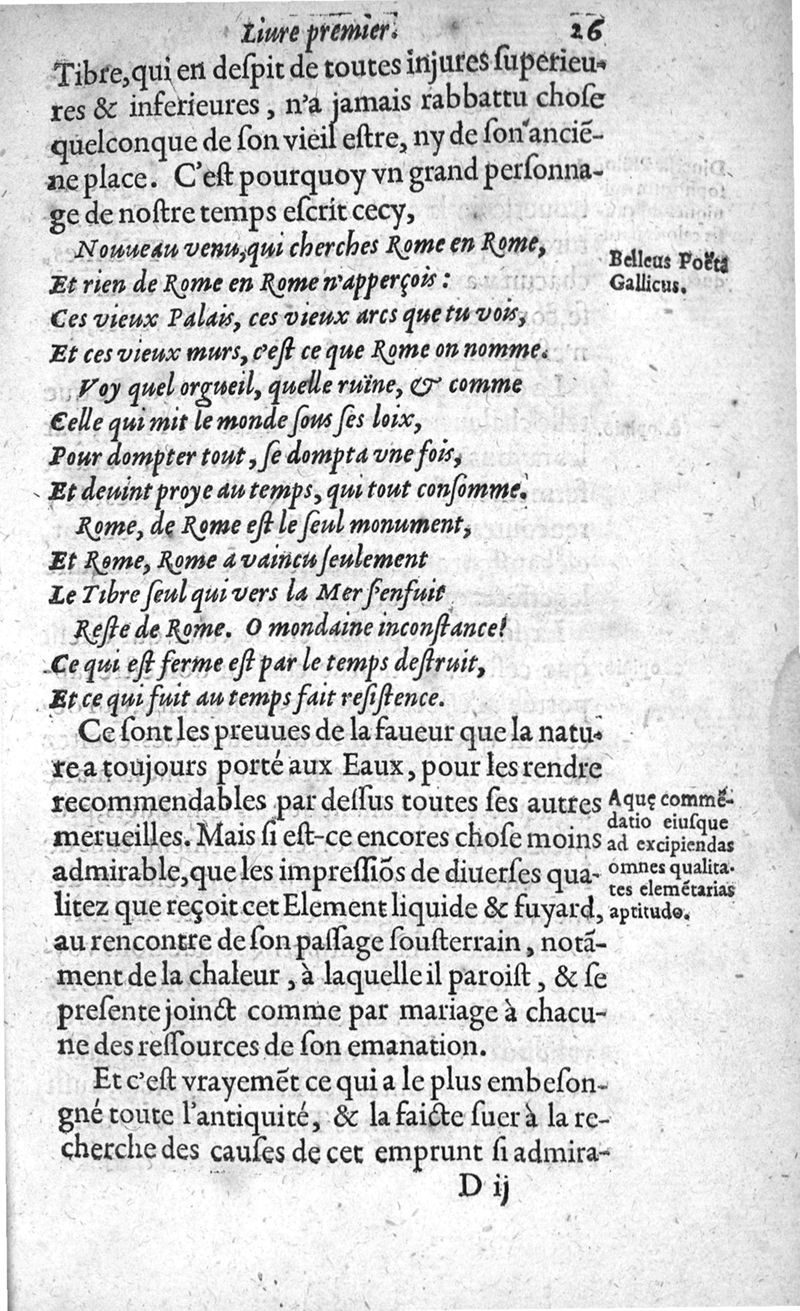 Liure premier. 26
Tibre, qui en deſpit de toutes injures ſuperieu-
res & inferieures, n'a jamais rabbattu choſe
quelconque de ſon vieil eſtre, ny de ſon anciē-
ne place. C'eſt pourquoy vn grand perſonna-
ge de noſtre temps eſcrit cecy,
Nouueau venu, qui cherches Rome en Rome,
Et rien de Rome en Rome n'apperçois :
Ces vieux Palais, ces vieux arcs que tu vois,
Et ces vieux murs, c'eſt ce que Rome on nomme.
Voy quel orgueil, quelle ruïne, & comme
Celle qui mit le monde ſous ſes loix,
Pour dompter tout, ſe dompta vne fois,
Et deuint proye au temps, qui tout conſomme.
Rome, de Rome eſt le ſeul monument,
Et Rome, Rome a vaincu ſeulement
Le Tibre ſeul qui vers la Mer ſ'enfuit
Reſte de Rome. O mondaine inconſtance!
Ce qui eſt ferme eſt par le temps deſtruit,
Et ce qui fuit au temps fait reſiſtence.
Belleus Poëta
Gallicus.
Ce ſont les preuues de la faueur que la natu-
re a toujours porté aux Eaux, pour les rendre
recommendables par deſſus toutes ſes autres
merueilles. Mais ſi eſt-ce encores choſe moins
admirable, que les impreſſiōs de diuerſes qua-
litez que reçoit cet Element liquide & fuyard,
au rencontre de ſon paſſage ſouſterrain, notā-
ment de la chaleur, à laquelle il paroiſt, & ſe
preſente joinct comme par mariage à chacu-
ne des reſſources de ſon emanation.
Aquę commē-
datio eiuſque
ad excipiendas
omnes qualita-
tes elemētarias
aptitudo.
Et c'eſt vrayemēt ce qui a le plus embeſon-
gné toute l'antiquité, & la faicte ſuer à la re-
cherche des cauſes de cet emprunt ſi admira-
D ij